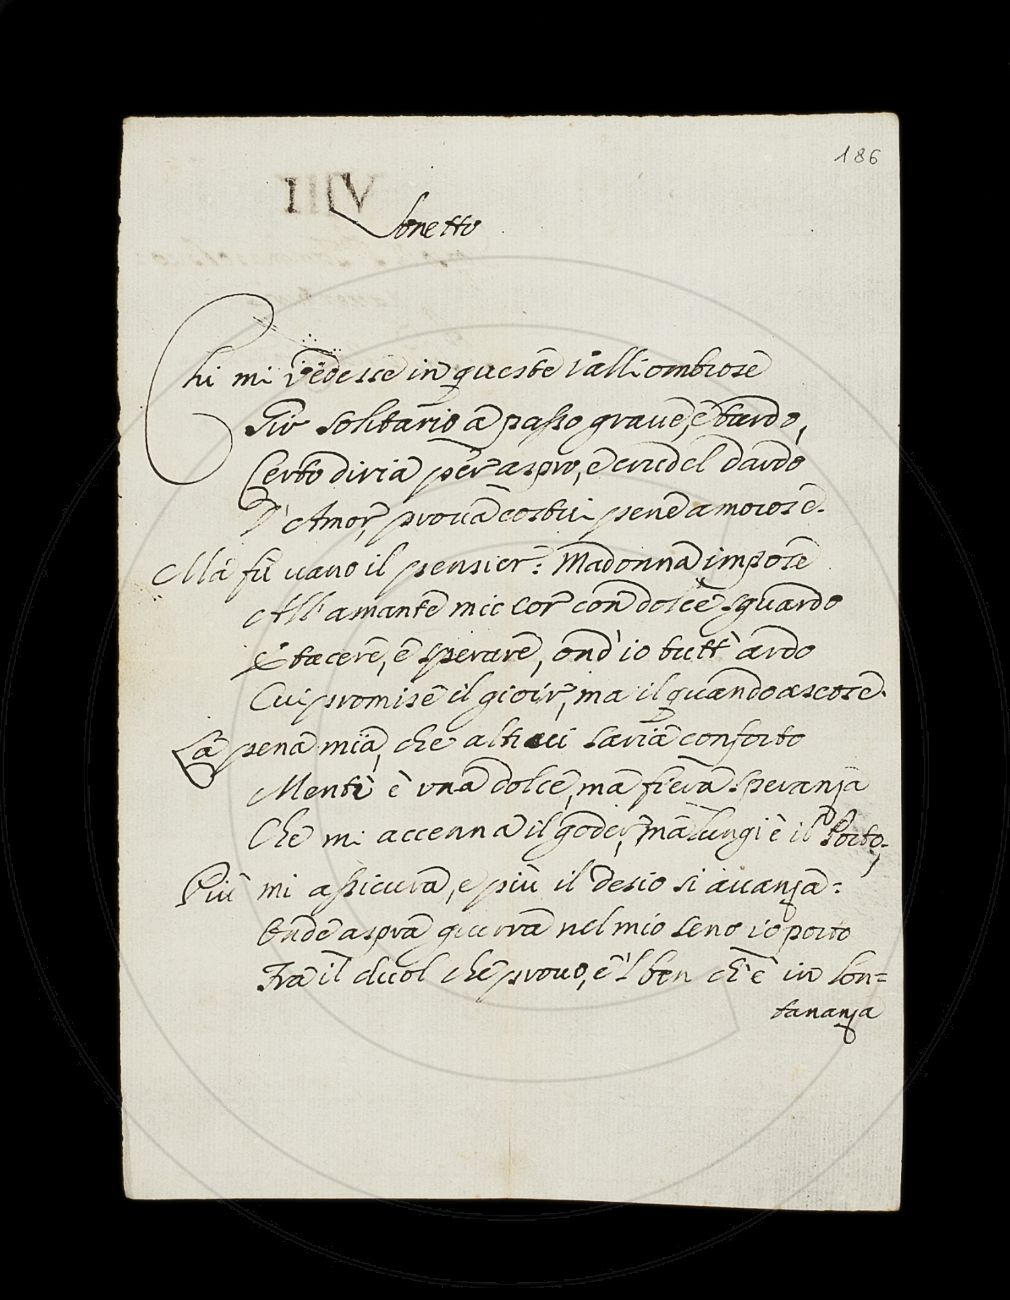 186
IIIV
Sonetto
Chi mi vedesse in queste valli ombrose
Gir solitario a passo graue, e tardo,
Certo diria per aspro, e crudel dardo
D'Amor, proua costui pene amorose.
Ma fù uano il pensier: Madonna impose
All'amante mio cor con dolce sguardo
E tacere, e sperare, ond'io tutt'ardo
Cui promise il gioir, ma il quando ascose.
La pena mia, che altrui saria conforto
Mentr'è una dolce, ma fiera speranza
Che mi accenna il goder, ma lungi è il Porto;
Più mi assicura, e più il desio si auanza:
Onde aspra guerra nel mio seno io porto
Fra il duol che prouo, e 'l ben ch'è in lon=
tananza